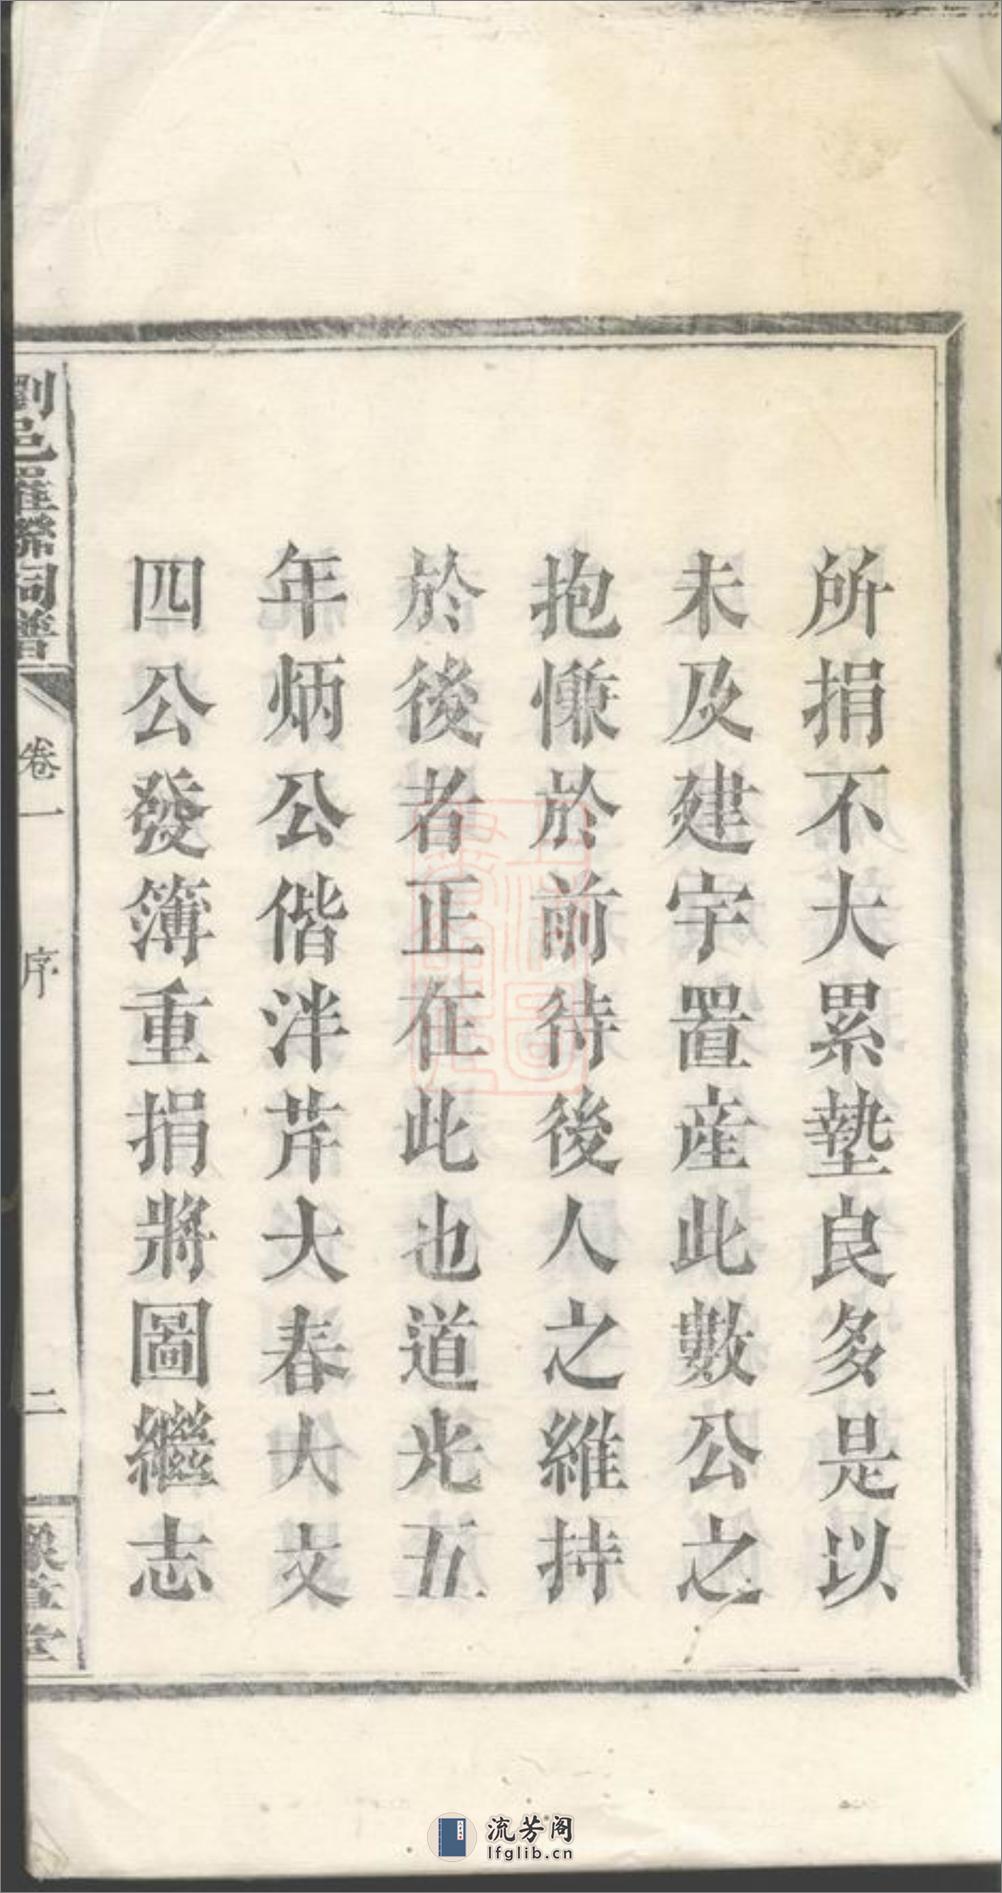 所捐不大累墊良多是以
未及建宇置産此數公之
抱慊於前待後人之維持
於後者正在此也道光五
年炳公偕泮芹大春大文
四公發簿重捐將圖繼志
瀏邑羅聯祠譜
卷一
序
二
豫章堂
流芳阁
lfglib.cn